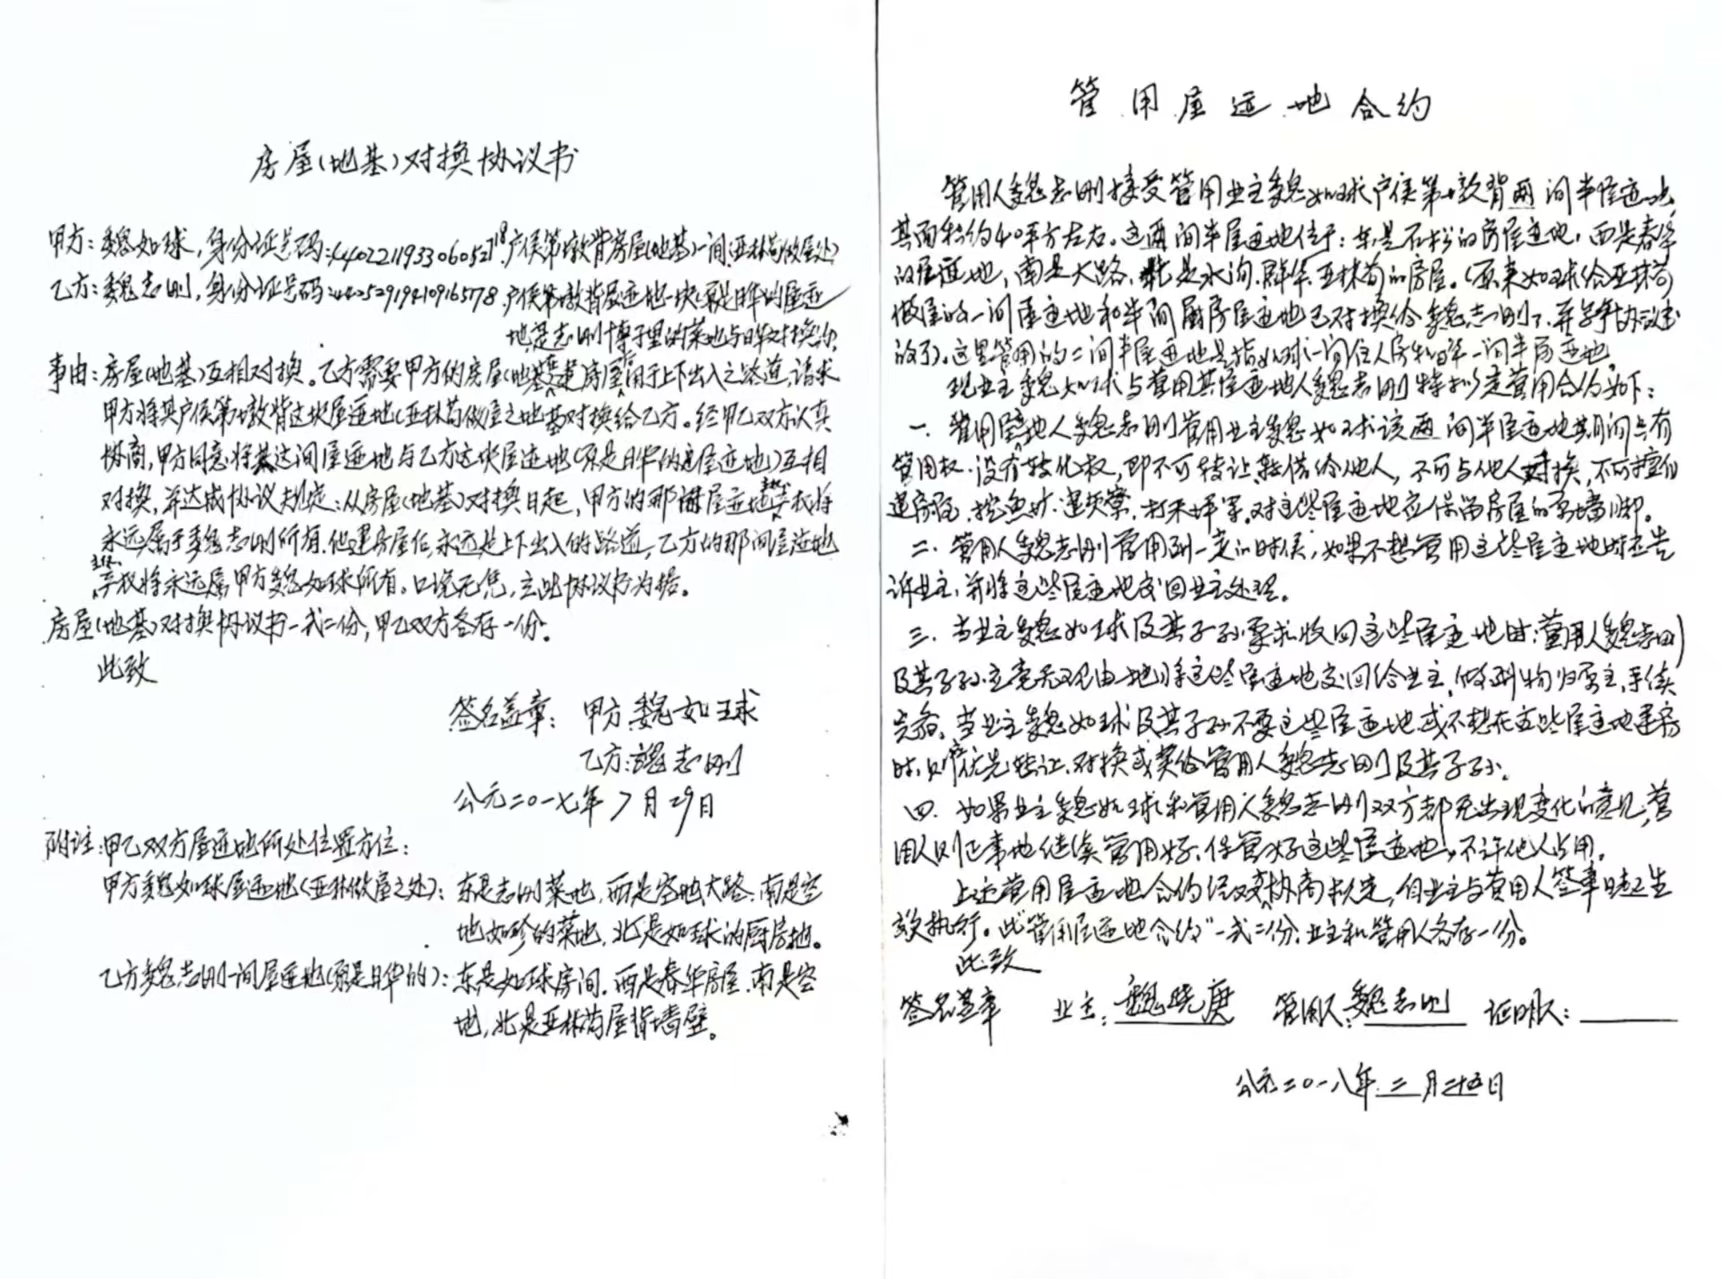 房屋(地基)对换协议书
甲方:魏如球,身份证号码:440221193306052718.户侯第墩背房屋(地基)一间(亚林苟做屋处)
乙方:魏志刚,身份证号码:442529194109165778.户侯第墩背屋迹地一块(原是日华的屋迹
地是志刚 里的菜地与日华对换的)
事由:房屋(地基)互相对换。乙方需要甲方的房屋(地基)建房屋 用于上下出入之路道,请求
甲方将其户侯第墩背这块屋迹地(亚林苟做屋之地基)对换给乙方。经甲乙双方认真
协商,甲方同意将其这间屋迹地与乙方这块屋迹地(原是日华的屋迹地)互相
对换,并达成协议规定:从房屋(地基)对换日起,甲方的那间屋迹地主权将
永远属于魏志刚所有,他建房屋住,永远是上下出入的路道,乙方的那间屋迹地
主权将永远属甲方魏如球所有。口说无凭,立此协议书为据。
房屋(地基)对换协议书一式二份,甲乙双方各存一份。
此致
签名盖章: 甲方:魏如球
乙方:魏志刚
公元二0一七年7月29日
附注:甲乙双方屋迹地所处位置方位:
甲方魏如球屋迹地(亚林做屋之处):东是志刚菜地,西是空地大路,南是空
地如珍的菜地,北是如球的厨房地。
乙方魏志刚一间屋迹地(原是日华的):东是如球房间,西是春华房屋,南是空
地,北是亚林苟屋背墙壁。
管用屋迹地合约
管用人魏志刚接受管用业主魏如球户侯第墩背两间半屋迹地,
其面积约40平方左右。这两间半屋迹地位于:东是石松的房屋迹地,西是春华
的屋迹地,南是大路,北是水沟、群华、亚林苟的房屋。(原来如球给亚林苟
做屋的一间屋迹地和半间厨房屋迹地已对换给魏志刚了,并写争协议书
放了)。这里管用的二间半屋迹地是指如球一间住人房和日华一间半房迹地。
现业主魏如球与管用其屋迹地人魏志刚特拟定管用合约如下:
一、管用屋地人魏志刚管用业主魏如球该两间半屋迹地其间只有
管用权,没有转化权,即不可转让、转借给他人,不可与他人对换,不可擅自
建房屋、挖鱼圹、建粪寮、打禾坪等。对这些屋迹地应保留房屋的原墙脚。
二、管用人魏志刚管用到一定的时候,如果不想管用这些屋迹地时应告
诉业主,并将这些屋迹地交回业主处理。
三、当业主魏如球及其子孙要求收回这些屋迹地时,管用人魏志刚
及其子孙应毫无理由地将这些屋迹地交回给业主,做到物归原主,手续
完备。当业主魏如球及其子孙不要这些屋迹地或不想在这些屋迹地建房
时,则应优先转让、对换或卖给管用人魏志刚及其子孙。
四、如果业主魏如球和管用人魏志刚双方都无出现变化的意见,管
用人则正事地继续管用好、保管好这些屋迹地,不许他人占用。
上述管用屋迹地合约经双方协商拟定,自业主与管用人签章日起生
效执行。此“管用屋迹地合约”一式二份,业主和管用人各存一份。
此致
签名盖章 业主:魏晓庚 管用人:魏志刚 证明人:
公元二0一八年二月二十五日